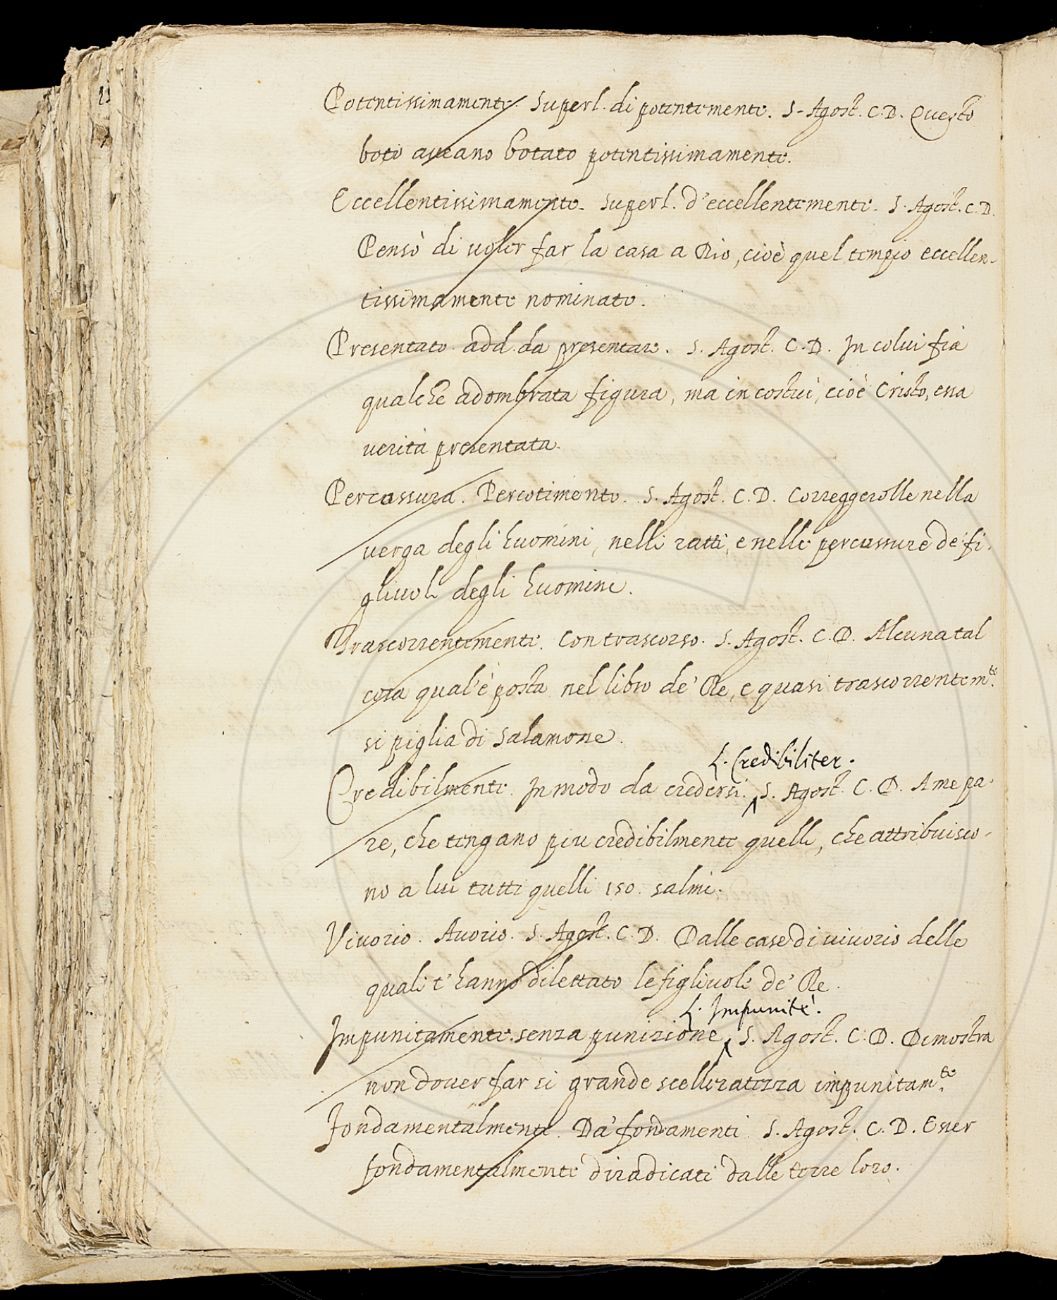 Potentissimamente. Superl. di potentemente. S. Agost. C. D. Questo
boto aveano botato potentissimamente.
Eccellentissimamente. Superl. d'eccellentemente. S. Agost. C. D.
Pensò di voler far la casa a Dio, cioè quel tempio eccellen-
tissimamente nominato.
Presentato. add. da presentare. S. Agost. C. D. In colui fia
qualche adombrata figura, ma in costui, cioè Cristo, essa
verità presentata.
Percussura. Percotimento. S. Agost. C. D. Correggerolle nella
verga degli huomini, nelli ratti, e nelle percussure de' fi-
gliuoli degli huomini.
Trascorrentemente. Con trascorso. S. Agost. C. D. Alcuna tal
cosa qual'è posta nel libro de' Re, e quasi trascorrentem.te
si piglia di Salamone.
L. Credibiliter.
Credibilmente. In modo da credersi. S. Agost. C. D. A me pa-
re, che tengano piu credibilmente quelli, che attribuisco-
no a lui tutti quelli 150. salmi.
Vivorio. Avorio. S. Agost. C. D. Dalle case di vivorio delle
quali t'hanno dilettato le figliuole de' Re.
L. Impunité.
Impunitamente. senza punizione. S. Agost. C. D. Dimostra
non dover far si grande scelleratezza impunitam.te
Fondamentalmente. Da' fondamenti. S. Agost. C. D. Ener
fondamentalmente diradicati dalle terre loro.